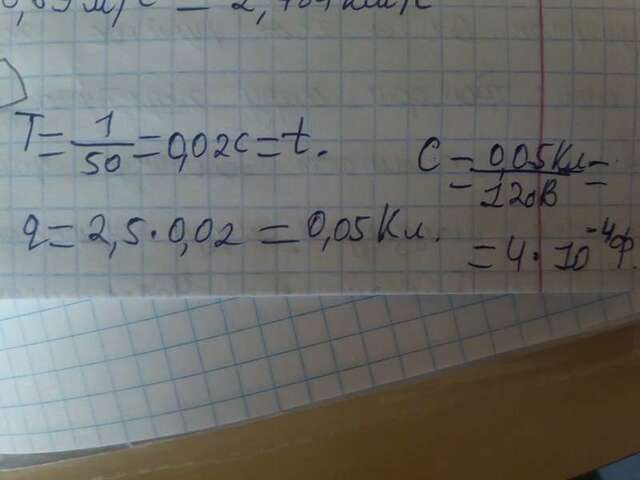 T = 1/50 = 0,02с = t.
q = 2,5 · 0,02 = 0,05 Кл.
C = 0,05Кл/120В =
= 4 · 10⁻⁴ф.